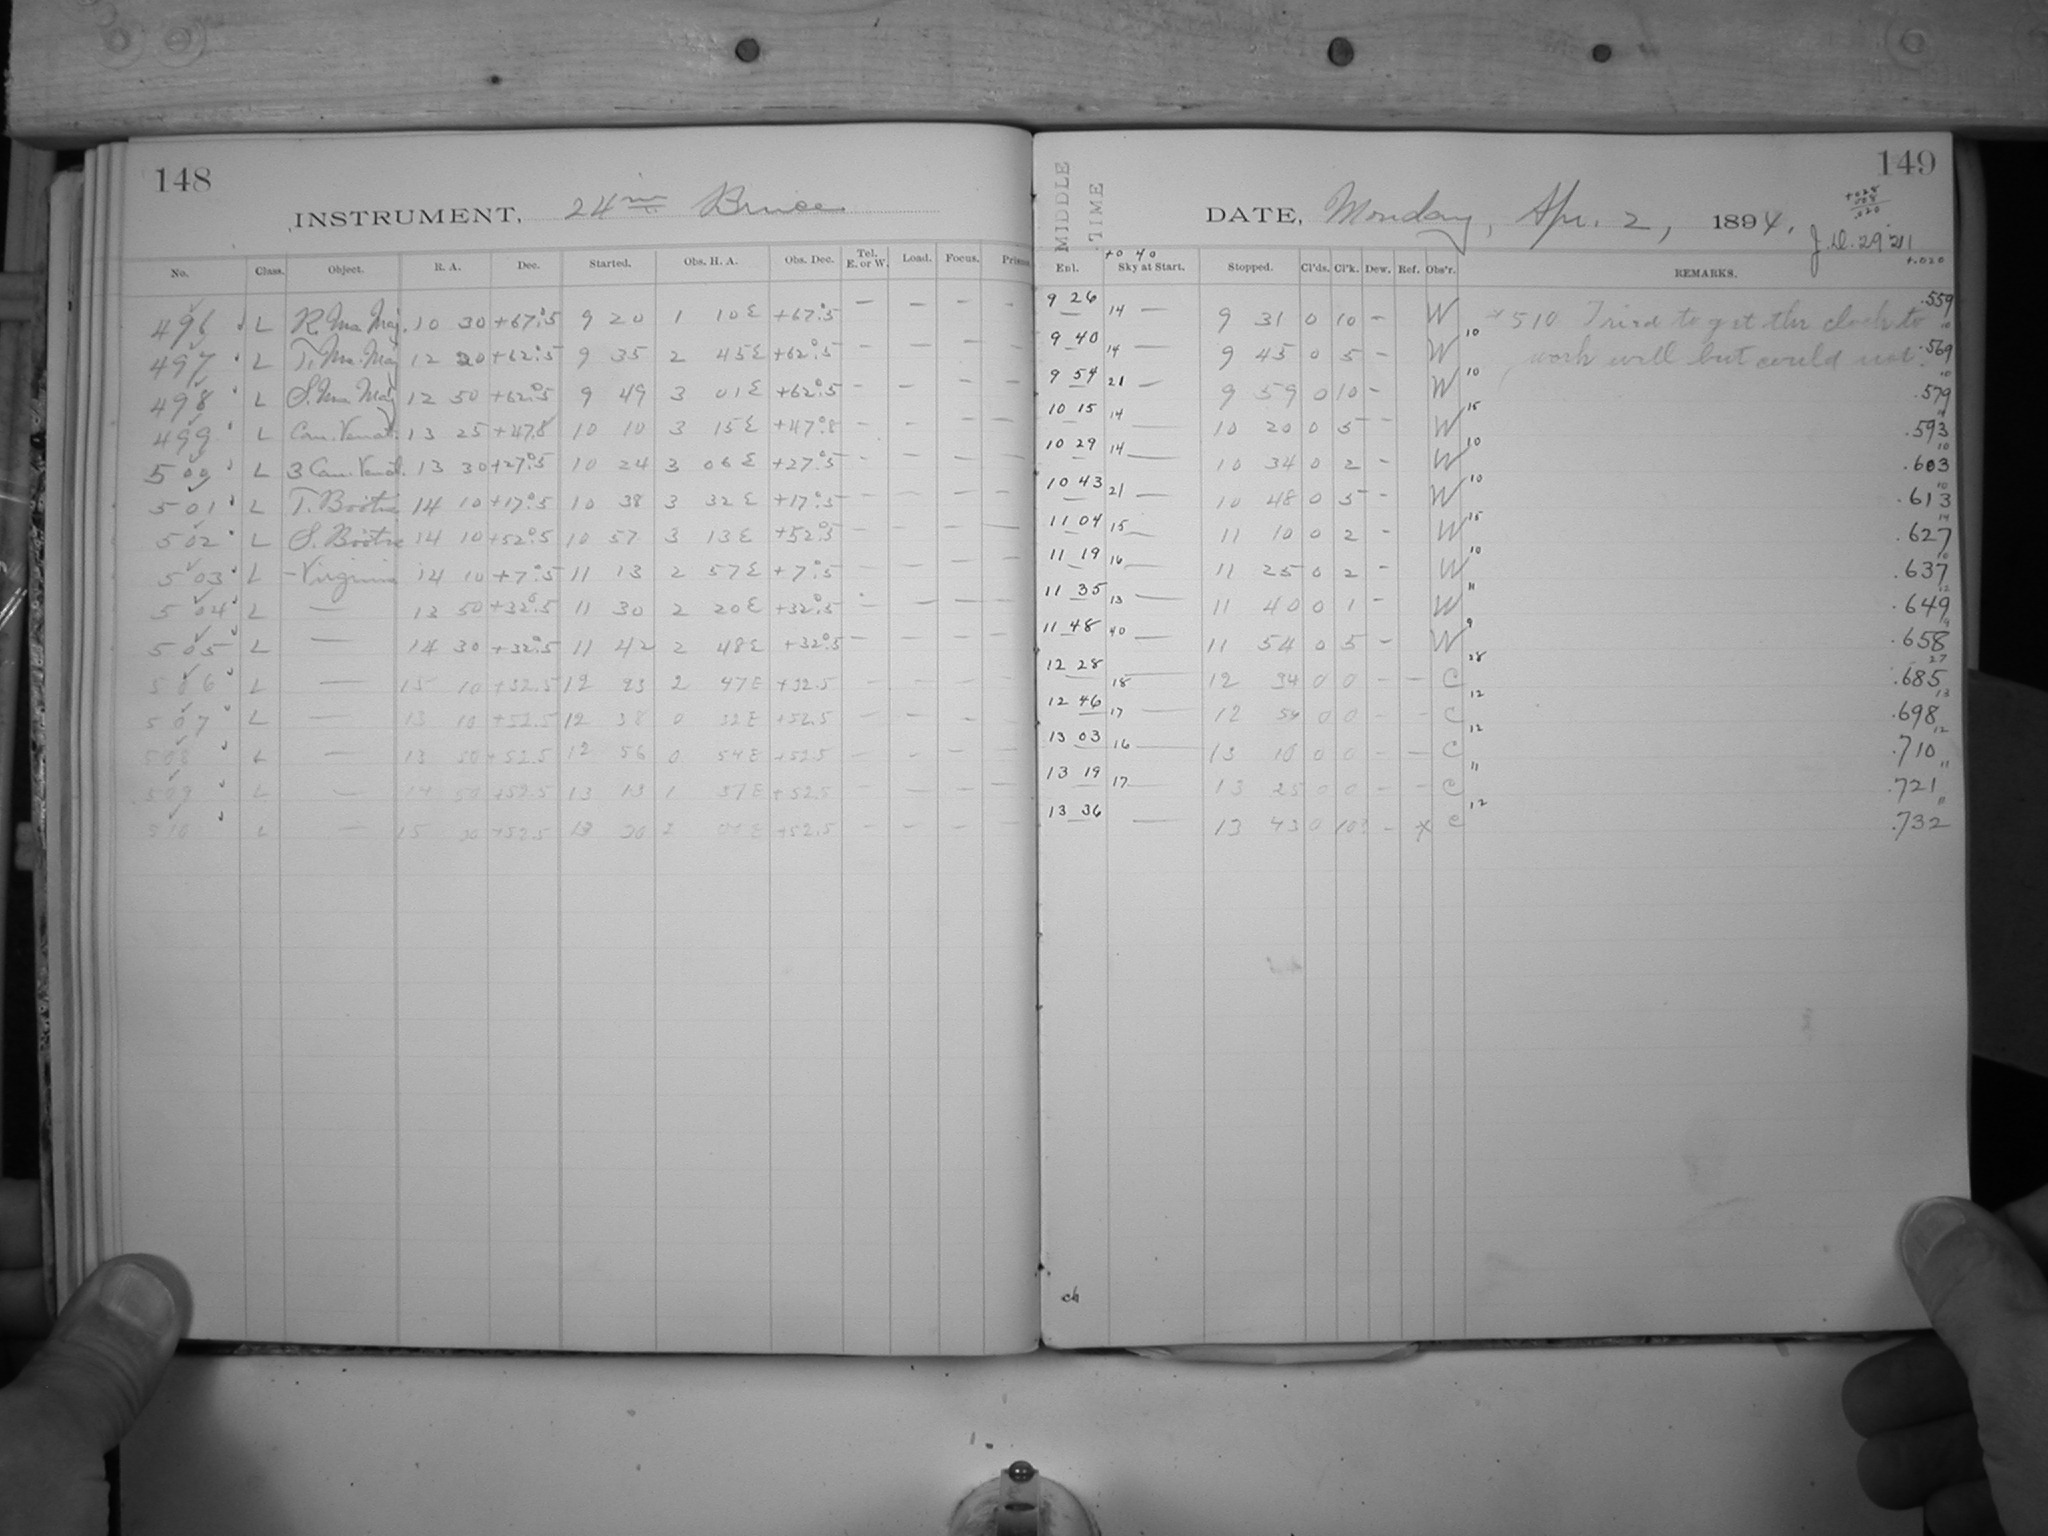 148
INSTRUMENT, 24 in Bruce
No. Class. Object. R. A. Dec. Started. Obs. H. A. Obs. Dec. Tel. E. or W. Load. Focus.
496 L R. Ma. Maj. 10 30 +67°.5 9 20 1 10 E +67°.5 — — — —
497 L T. Ma. Maj 12 20 +62°.5 9 35 2 45 E +62°.5 — — — —
498 L S. Ma. Maj 12 50 +62°.5 9 49 3 01 E +62°.5 — — — —
499 L Can. Venat. 13 25 +47.8 10 10 3 15 E +47°.8 — — — —
500 L 3 Can. Venat. 13 30 +27°.5 10 24 3 06 E +27°.5 — — — —
501 L T. Boötis 14 10 +17°.5 10 38 3 32 E +17°.5 — — — —
502 L S. Boötis 14 10 +52°.5 10 57 3 13 E +52°.5 — — — —
503 L – Virginis 14 10 +7°.5 11 13 2 57 E +7°.5 — — — —
504 L — 13 50 +32°.5 11 30 2 20 E +32°.5 — — — —
505 L — 14 30 +32°.5 11 42 2 48 E +32°.5 — — — —
506 L — 15 10 +32.5 12 23 2 47 E +32.5 — — — —
507 L — 13 10 +52.5 12 38 0 32 E +52.5 — — — —
508 L — 13 50 +52.5 12 56 0 54 E +52.5 — — — —
509 L — 14 50 +52.5 13 13 1 37 E +52.5 — — — —
510 L — 15 30 +52.5 13 30 2 E +52.5 — — — —
149
MIDDLE
TIME
DATE, Monday, Apr. 2, 1894.
+.028
.008
.020
J.D. 29211
+0 40
+.020
Enl. Sky at Start. Stopped. Cl'ds. Cl'k. Dew. Ref. Obs'r. REMARKS.
9 26 14 — 9 31 0 10 – W * 510 Tried to get the clock to .559
9 40 14 — 9 45 0 5 – W 10 work well but could not. .569 10
9 54 21 — 9 59 0 10 – W 10 .579 10
10 15 14 — 10 20 0 5 – W 15 .593 14
10 29 14 — 10 34 0 2 – W 10 .603 10
10 43 21 — 10 48 0 5 – W 10 .613 10
11 04 15 — 11 10 0 2 – W 15 .627 14
11 19 16 — 11 25 0 2 – W 10 .637 10
11 35 13 — 11 40 0 1 – W 11 .649 12
11 48 40 — 11 54 0 5 – W 9 .658 9
12 28 18 — 12 34 0 0 – – C 28 .685 27
12 46 17 — 12 54 0 0 – – C 12 .698 13
13 03 16 — 13 10 0 0 – – C 12 .710 12
13 19 17 — 13 25 0 0 – – C 11 .721 11
13 36 — 13 43 0 10? – * C 12 .732 11
ch